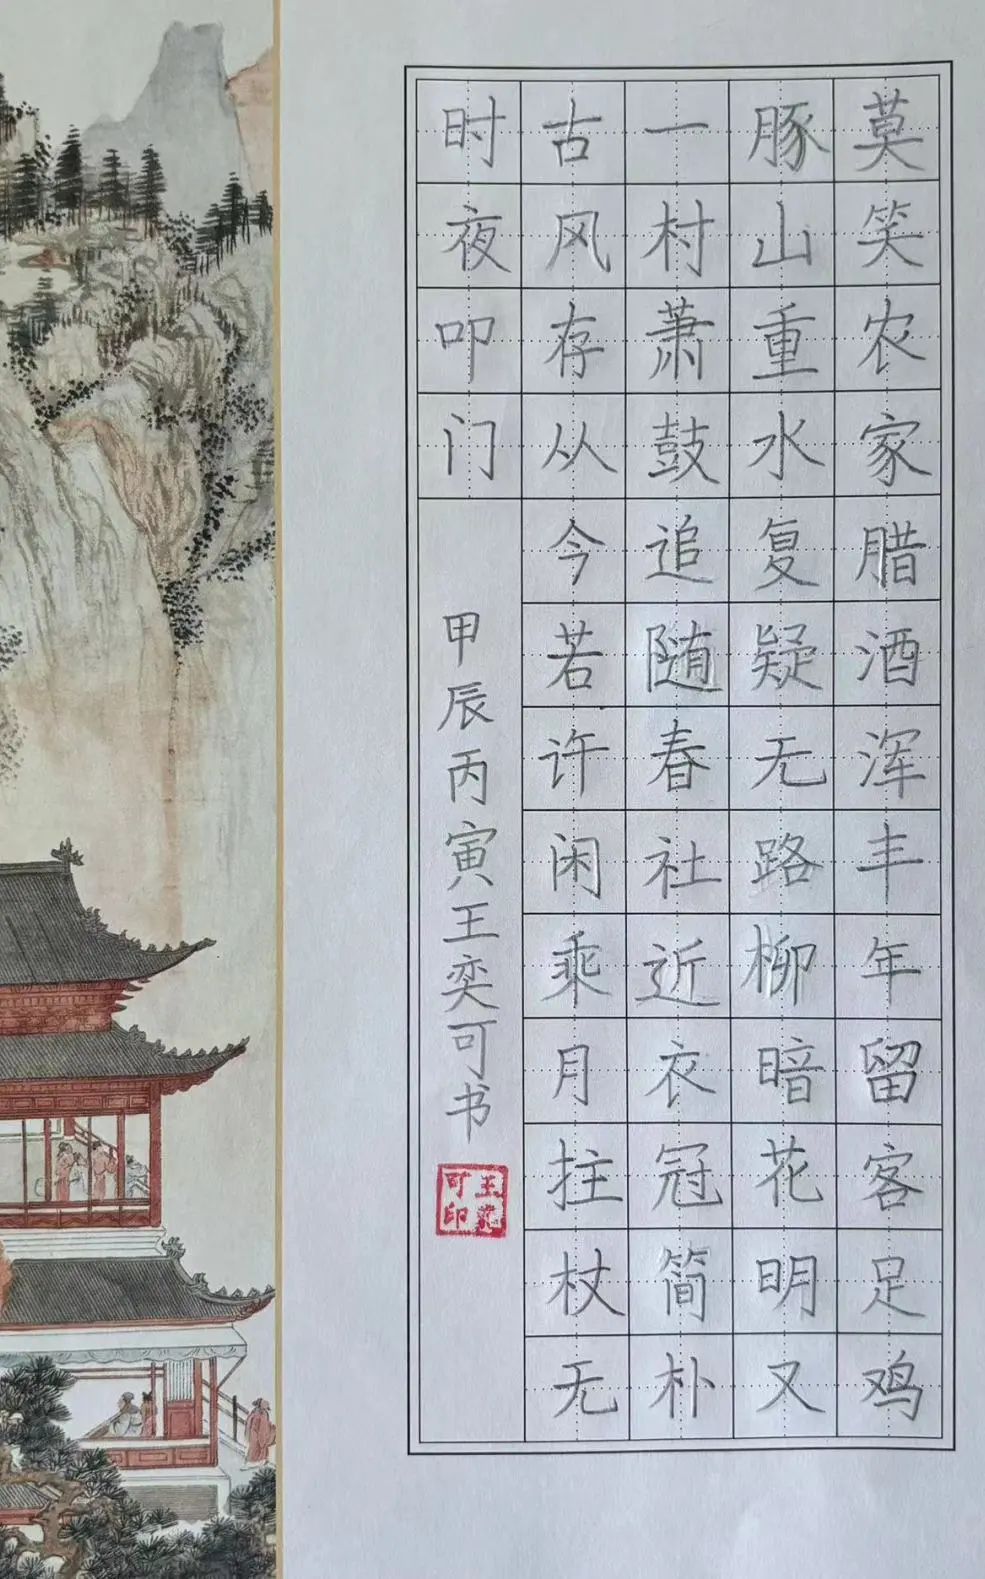 莫笑农家腊酒浑丰年留客足鸡
豚山重水复疑无路柳暗花明又
一村萧鼓追随春社近衣冠简朴
古风存从今若许闲乘月拄杖无
时夜叩门
甲辰丙寅王奕可书
王奕
可印